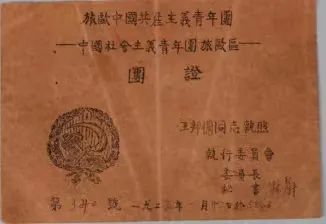 旅歐中國共產主義青年團
—中國社會主義青年團旅歐區—
團證
同志執照
執行委員會
委員長
秘書
第 號 一九二 年一月十